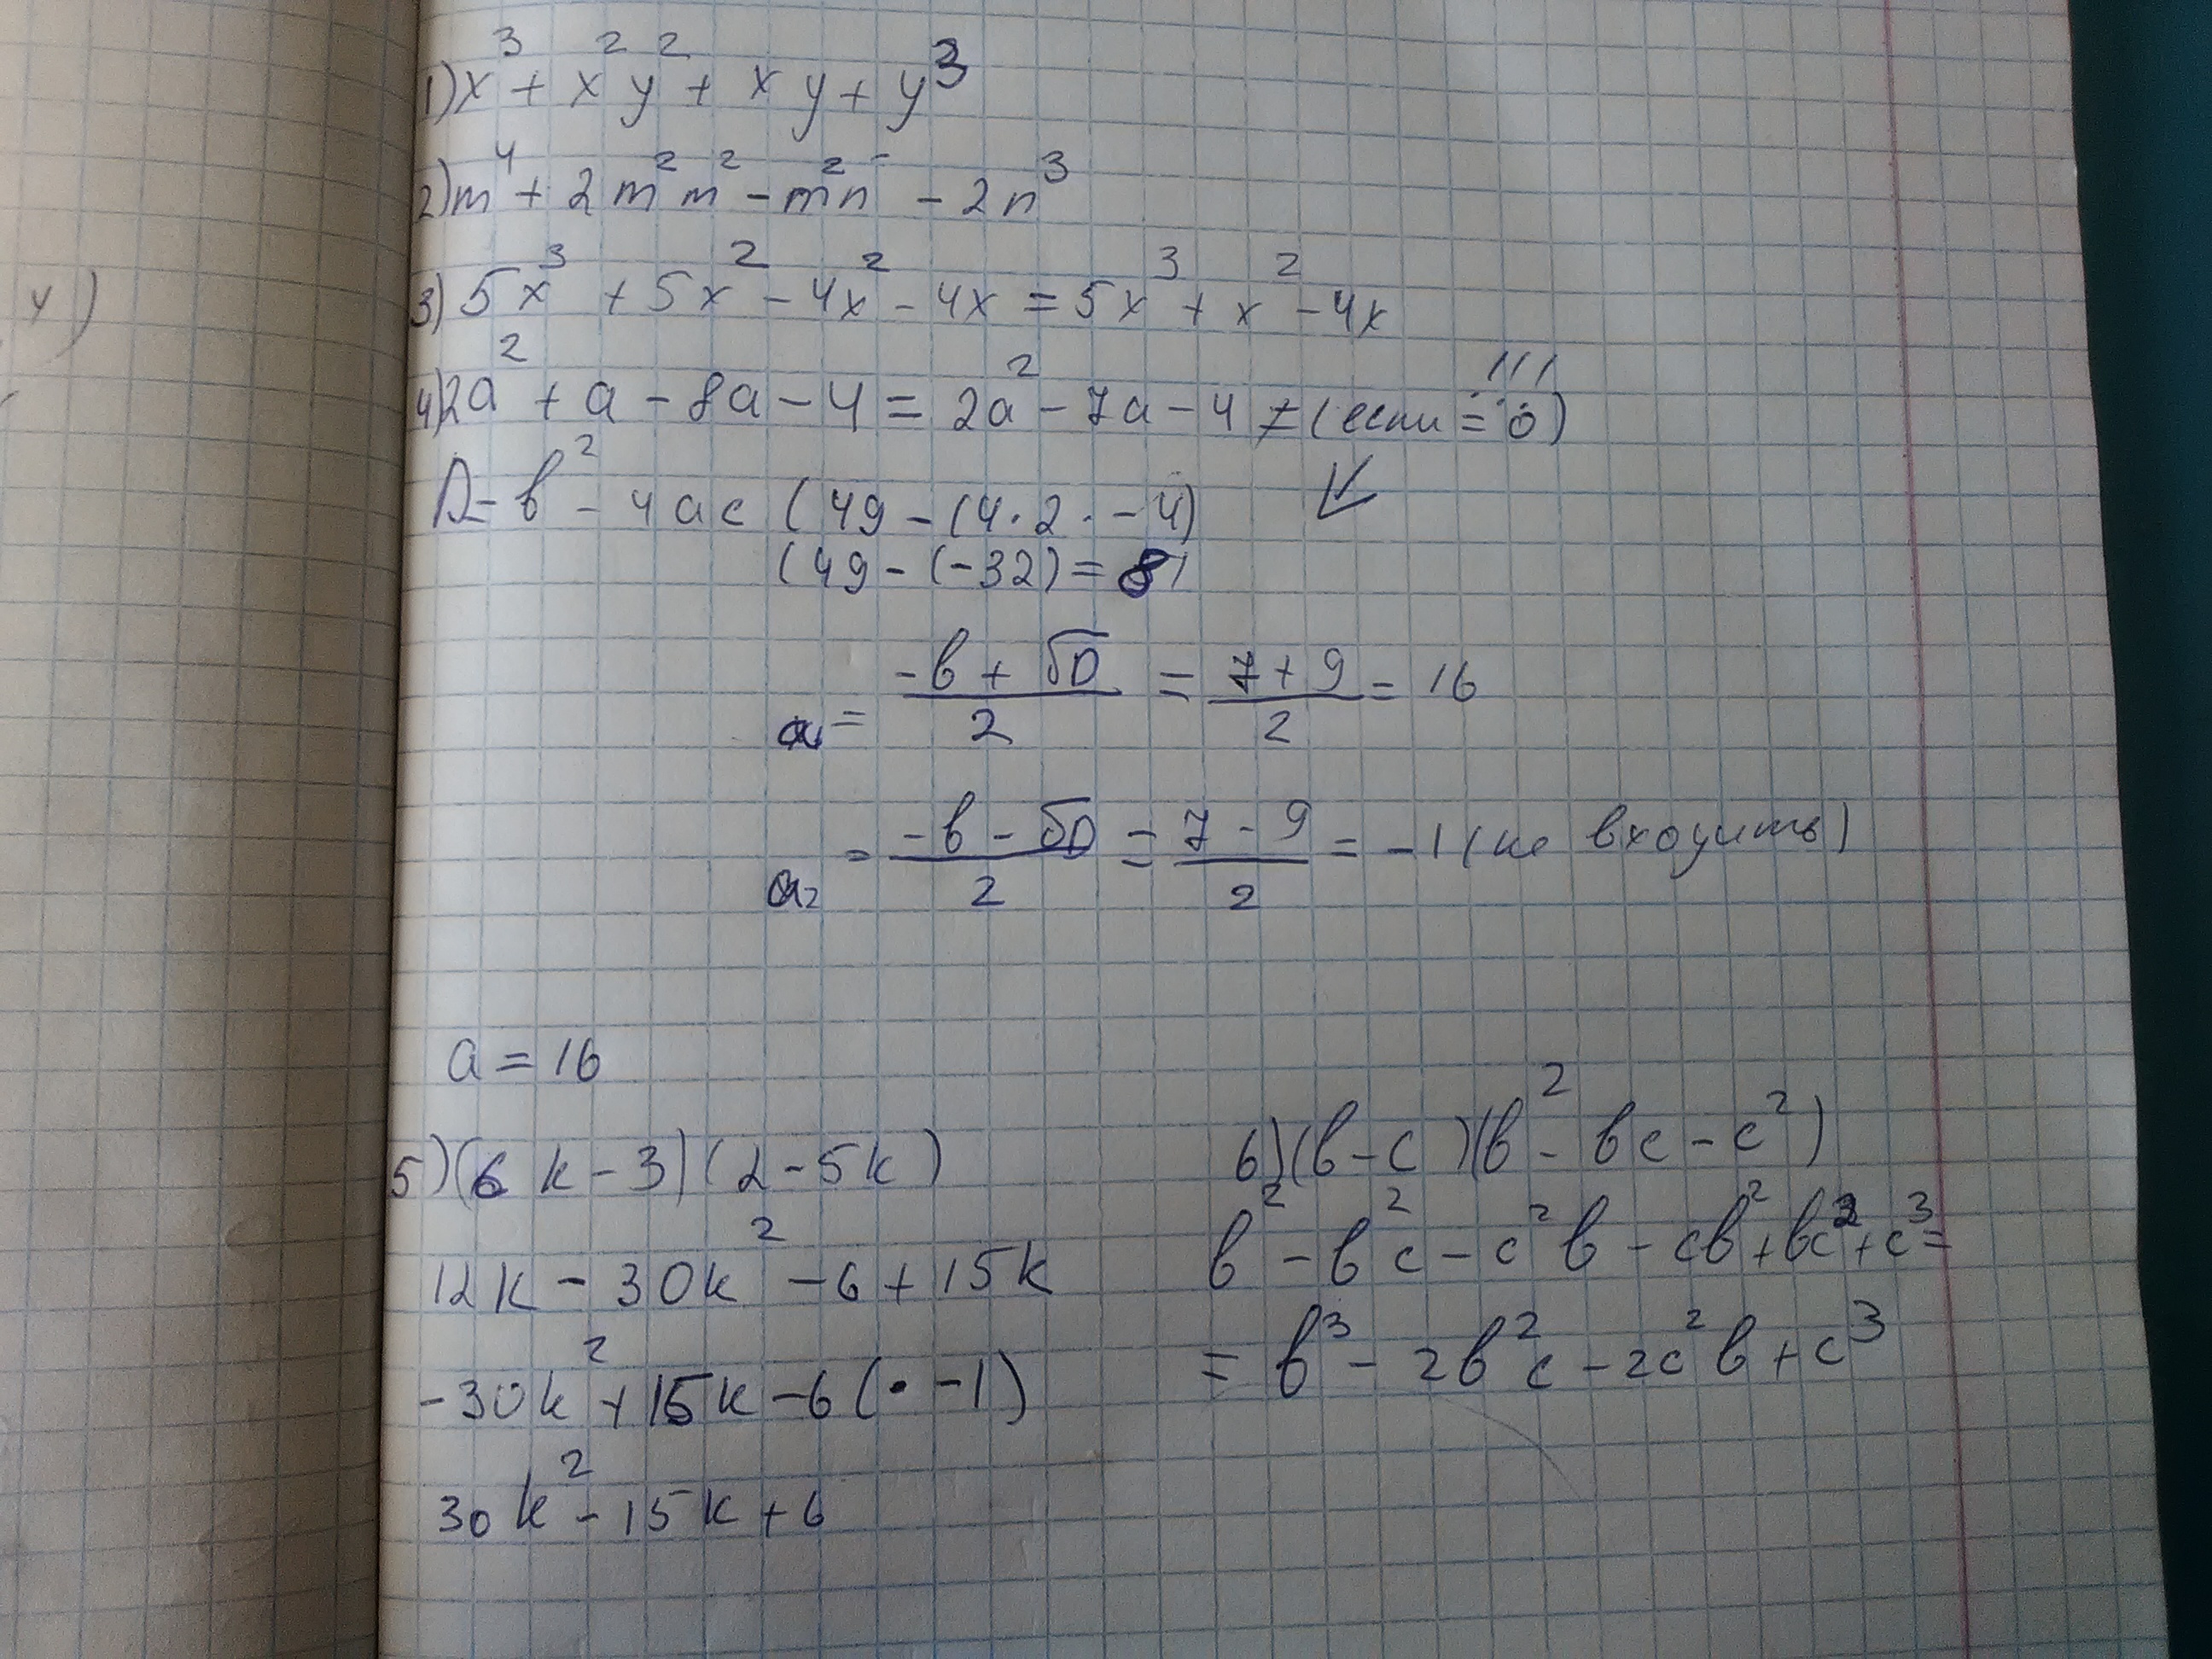 y)
1) x³ + x²y² + xy + y³
2) m⁴ + 2m²m² - m²n - 2n³
3) 5x³ + 5x² - 4x² - 4x = 5x³ + x² - 4x
4) 2a² + a - 8a - 4 = 2a² - 7a - 4 ≠ (если = 0) !!!
D = b² - 4ac (49 - (4·2·-4)
(49 - (-32) = 81
a₁ = (-b + √D)/2 = (7 + 9)/2 = 16
a₂ = (-b - √D)/2 = (7 - 9)/2 = -1 (не входить)
a = 16
5) (6k - 3)(2 - 5k)
12k - 30k² - 6 + 15k
-30k² + 15k - 6 (· -1)
30k² - 15k + 6
6) (b - c)(b² - bc - c²)
b² - b²c - c²b - cb² + bc² + c³ =
= b³ - 2b²c - 2c²b + c³